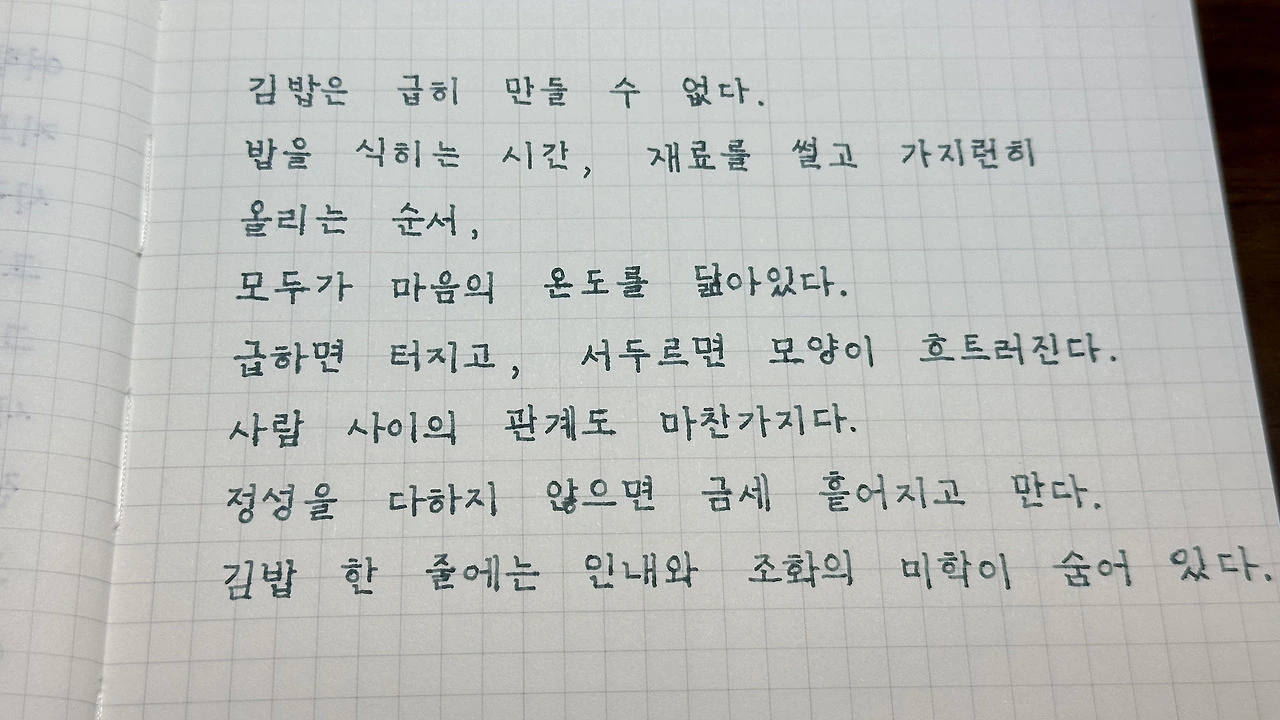 김밥은 급히 만들 수 없다.
밥을 식히는 시간, 재료를 썰고 가지런히
올리는 순서,
모두가 마음의 온도를 닮아있다.
급하면 터지고, 서두르면 모양이 흐트러진다.
사람 사이의 관계도 마찬가지다.
정성을 다하지 않으면 금세 흩어지고 만다.
김밥 한 줄에는 인내와 조화의 미학이 숨어 있다.